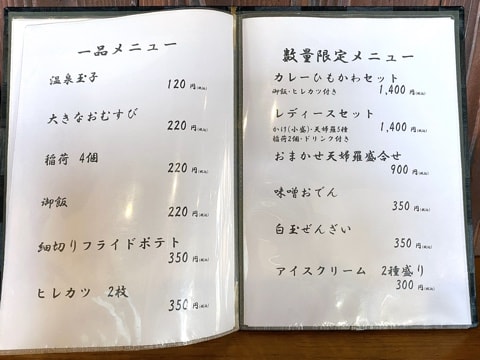 一品メニュー
温泉玉子 120円(税込)
大きなおむすび 220円(税込)
稲荷 4個 220円(税込)
御飯 220円(税込)
細切りフライドポテト 350円(税込)
ヒレカツ 2枚 350円(税込)
数量限定メニュー
カレーひもかわセット
御飯・ヒレカツ付き 1,400円(税込)
レディースセット
かけ(小盛)・天婦羅5種 1,400円(税込)
稲荷2個・ドリンク付き
おまかせ天婦羅盛合せ
900円(税込)
味噌おでん
350円(税込)
白玉ぜんざい
350円(税込)
アイスクリーム 2種盛り
300円(税込)